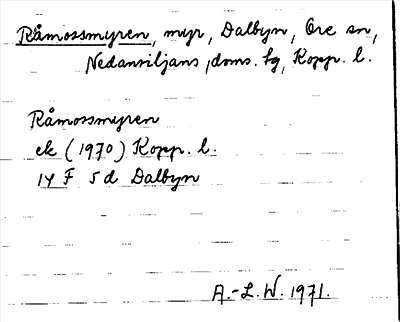 Råmossmyren, myr, Dalbyn, Ore sn,
Nedansiljans doms. tg, Kopp. l.
Råmossmyren
ek (1970) Kopp. l.
14 F 5d Dalbyn
A.-L. W. 1971.